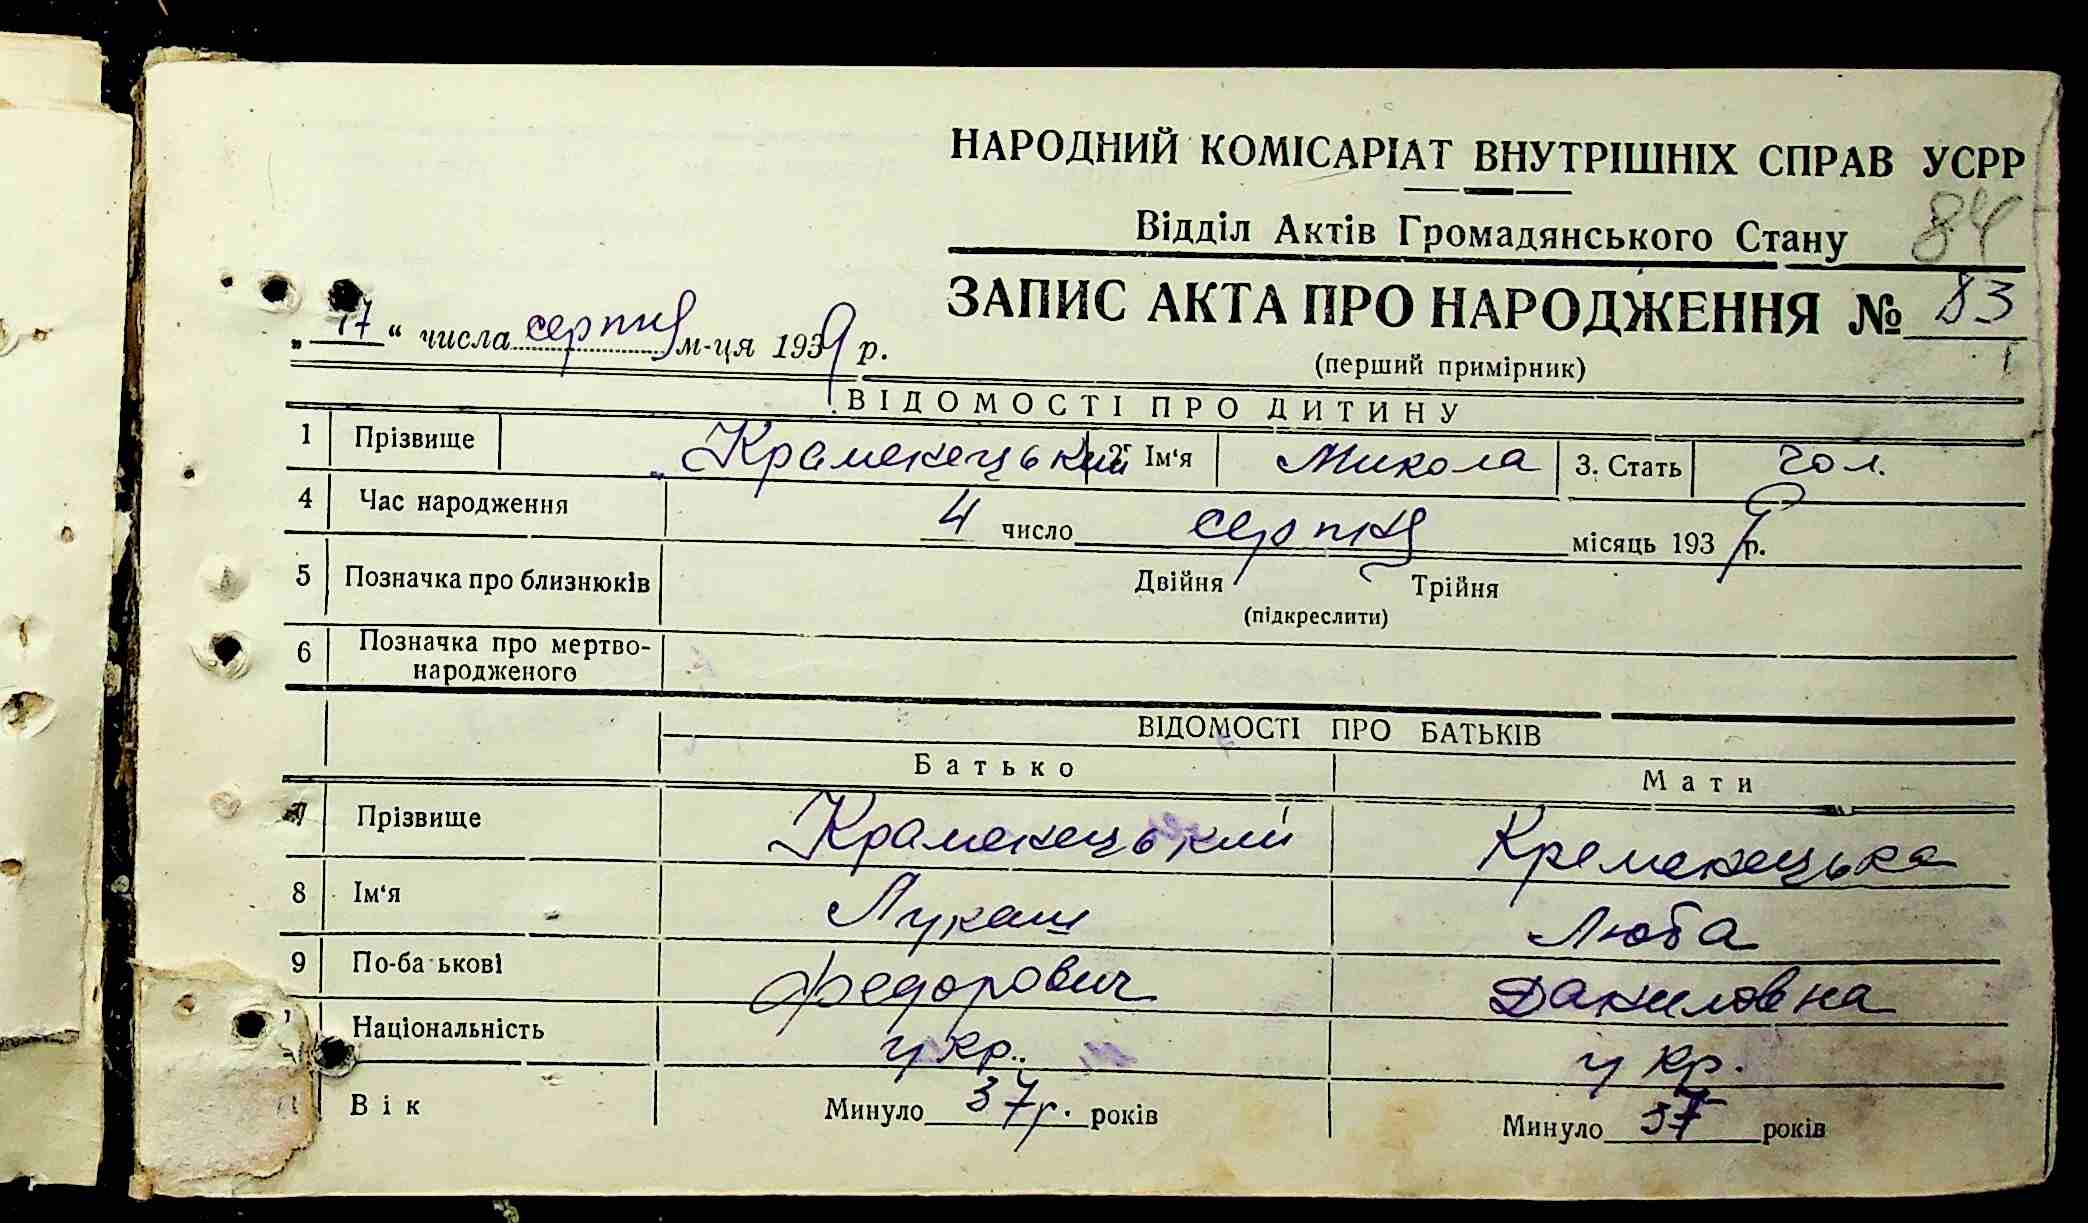 НАРОДНИЙ КОМІСАРІАТ ВНУТРІШНІХ СПРАВ УСРР
Відділ Актів Громадянського Стану 84
ЗАПИС АКТА ПРО НАРОДЖЕННЯ № 83
„17“ числа серпня м-ця 1939 р.
(перший примірник) 1
ВІДОМОСТІ ПРО ДИТИНУ
1 Прізвище Краменецький 2 Ім‘я Микола 3. Стать чол.
4 Час народження 4 число серпня місяць 1939 р.
5 Позначка про близнюків Двійня Трійня
(підкреслити)
6 Позначка про мертво-
народженого
ВІДОМОСТІ ПРО БАТЬКІВ
Батько Мати
7 Прізвище Краменецький Кременецька
8 Ім‘я Лукаш Люба
9 По-ба ькові Федорович Даниловна
Національність укр. укр.
Вік Минуло 37 р. років Минуло 37 років